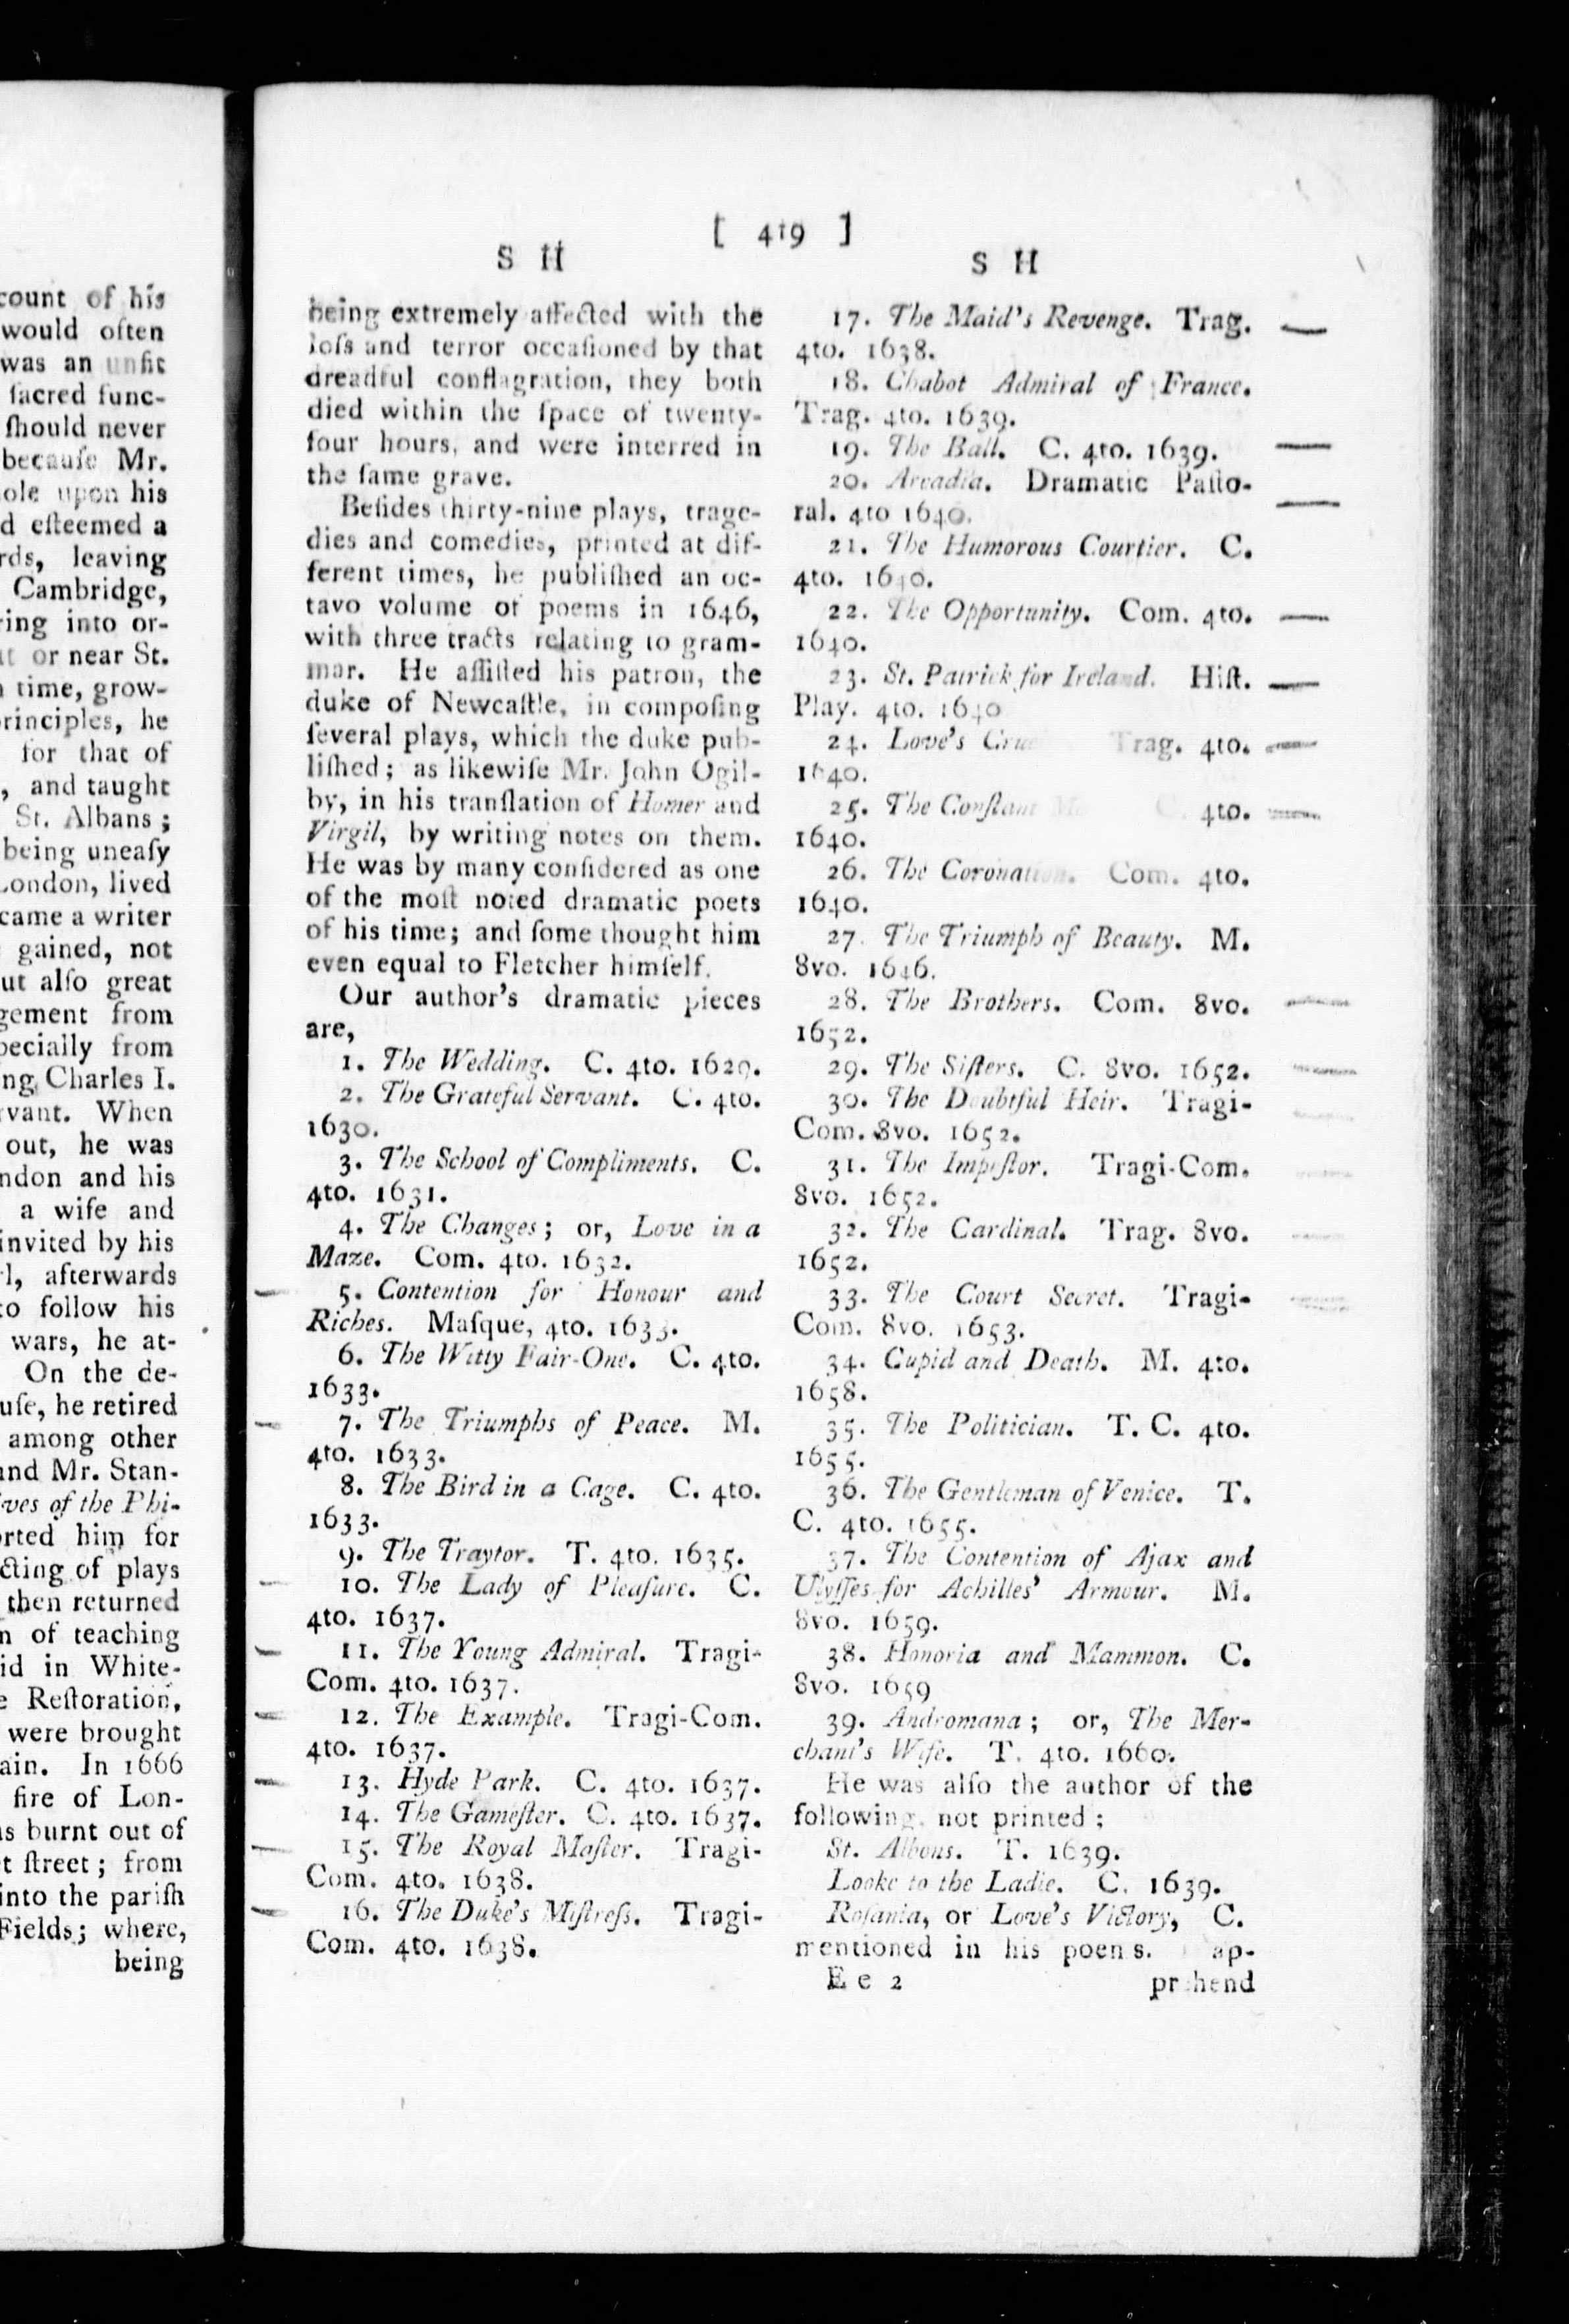 count of his
would often
was an unfit
ſacred func-
ſhould never
becauſe Mr.
ole upon his
d eſteemed a
rds, leaving
Cambridge,
ring into or-
at or near St.
time, grow-
principles, he
for that of
, and taught
St. Albans;
being uneaſy
London, lived
came a writer
gained, not
ut alſo great
gement from
pecially from
ng Charles I.
rvant. When
out, he was
ndon and his
a wife and
invited by his
rl, afterwards
to follow his
wars, he at-
On the de-
uſe, he retired
among other
and Mr. Stan-
ives of the Phi-
orted him for
cting of plays
then returned
n of teaching
id in White-
e Reſtoration,
were brought
ain. In 1666
fire of Lon-
as burnt out of
t ſtreet; from
into the pariſh
Fields; where,
being
[ 419 ]
S H
being extremely affected with the
loſs and terror occaſioned by that
dreadful conflagration, they both
died within the ſpace of twenty-
four hours, and were interred in
the ſame grave.
Beſides thirty-nine plays, trage-
dies and comedies, printed at dif-
ferent times, he publiſhed an oc-
tavo volume of poems in 1646,
with three tracts relating to gram-
mar. He aſſiſted his patron, the
duke of Newcaſtle, in compoſing
ſeveral plays, which the duke pub-
liſhed; as likewiſe Mr. John Ogil-
by, in his tranſlation of Homer and
Virgil, by writing notes on them.
He was by many conſidered as one
of the moſt noted dramatic poets
of his time; and ſome thought him
even equal to Fletcher himſelf.
Our author's dramatic pieces
are,
1. The Wedding. C. 4to. 1629.
2. The Grateful Servant. C. 4to.
1630.
3. The School of Compliments. C.
4to. 1631.
4. The Changes; or, Love in a
Maze. Com. 4to. 1632.
5. Contention for Honour and
Riches. Maſque, 4to. 1633.
6. The Witty Fair-One. C. 4to.
1633.
7. The Triumphs of Peace. M.
4to. 1633.
8. The Bird in a Cage. C. 4to.
1633.
9. The Traytor. T. 4to. 1635.
10. The Lady of Pleaſure. C.
4to. 1637.
11. The Young Admiral. Tragi-
Com. 4to. 1637.
12. The Example. Tragi-Com.
4to. 1637.
13. Hyde Park. C. 4to. 1637.
14. The Gameſter. C. 4to. 1637.
15. The Royal Maſter. Tragi-
Com. 4to. 1638.
16. The Duke's Miſtreſs. Tragi-
Com. 4to. 1638.
S H
17. The Maid's Revenge. Trag.
4to. 1638.
18. Chabot Admiral of France.
Trag. 4to. 1639.
19. The Ball. C. 4to. 1639.
20. Arcadia. Dramatic Paſto-
ral. 4to 1640.
21. The Humorous Courtier. C.
4to. 1640.
22. The Opportunity. Com. 4to.
1640.
23. St. Patrick for Ireland. Hiſt.
Play. 4to. 1640
24. Love's Trag. 4to.
1640.
25. The Conſtant C. 4to.
1640.
26. The Coronation. Com. 4to.
1640.
27. The Triumph of Beauty. M.
8vo. 1646.
28. The Brothers. Com. 8vo.
1652.
29. The Siſters. C. 8vo. 1652.
30. The Doubtful Heir. Tragi-
Com. 8vo. 1652.
31. The Impoſtor. Tragi-Com.
8vo. 1652.
32. The Cardinal. Trag. 8vo.
1652.
33. The Court Secret. Tragi-
Com. 8vo. 1653.
34. Cupid and Death. M. 4to.
1658.
35. The Politician. T. C. 4to.
1655.
36. The Gentleman of Venice. T.
C. 4to. 1655.
37. The Contention of Ajax and
Ulyſſes for Achilles' Armour. M.
8vo. 1659.
38. Honoria and Mammon. C.
8vo. 1659
39. Andromana; or, The Mer-
chant's Wife. T. 4to. 1660.
He was alſo the author of the
following, not printed;
St. Albons. T. 1639.
Looke to the Ladie. C. 1639.
Roſania, or Love's Victory, C.
mentioned in his poems. ap-
E e 2 prehend